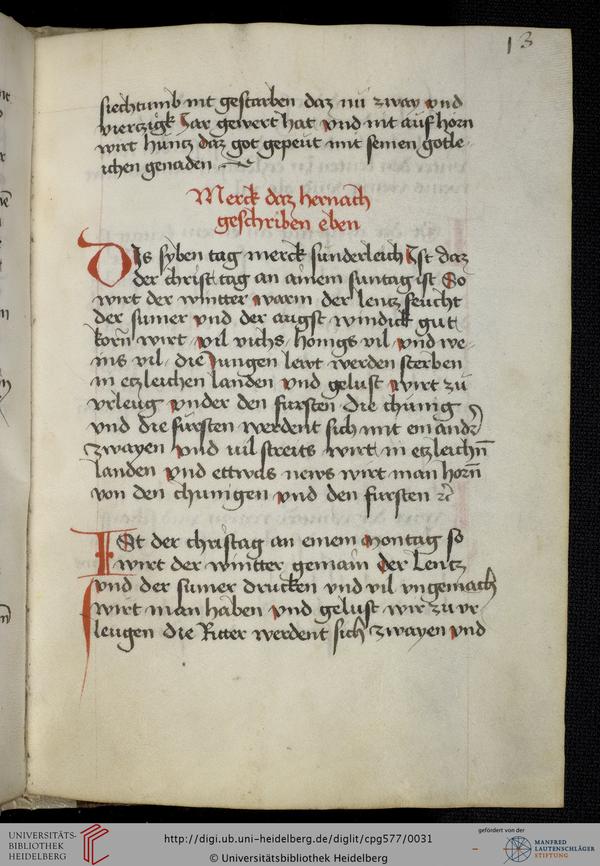 13
siechtumb nit gestarben daz nu zway vnd
vierczigk Jar gewert hat vnd nit aufhorn
wirt huncz daz got gepeut mit seinen gotle
ichen genaden
Merck daz hernach
geschriben eben
Dis syben tag merck sunderleich Ist daz
der christ tag an ainem suntag ist So
wirt der wintter warm der lencz feucht
der sumer vnd der augst windick gut
korn wirt vil vichs honigs vil vnd we-
ins vil die Jungen lewt werden sterben
in etzleichen landen vnd gelust wirt zu
vrleug vnder den fursten die chunig
vnd die fursten werdent sich mit ein andr
zwayen vnd vil streits wirt in etzleichn
landen vnd ettwas news wirt man horn
von den chunigen vnd den fursten
Ist der christag an einem montag so
wirt der wintter gemain der Lentz
vnd der sumer drucken vnd vil vngemach
wirt man haben vnd gelust wir zu vr
leugen die Ritter werdent sich zwayen vnd
UNIVERSITÄTS-
BIBLIOTHEK
HEIDELBERG
http://digi.ub.uni-heidelberg.de/diglit/cpg577/0031
© Universitätsbibliothek Heidelberg
gefördert von der
MANFRED
LAUTENSCHLÄGER
STIFTUNG